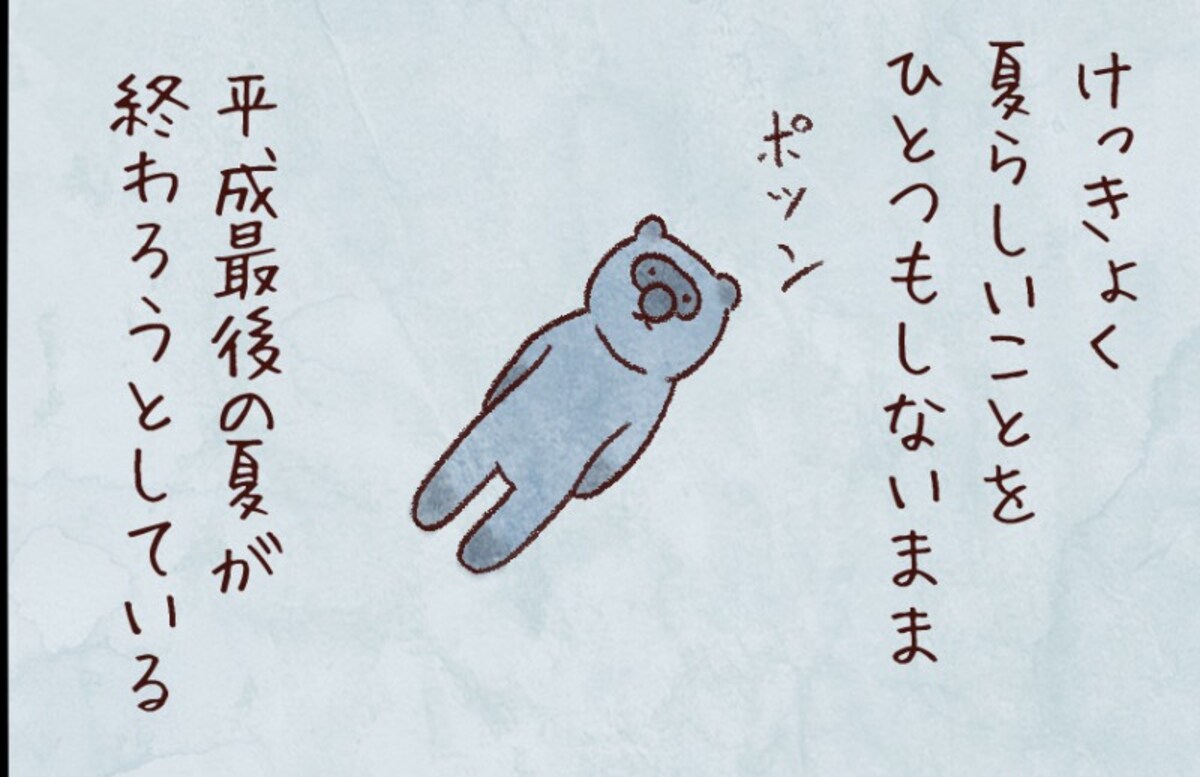 けっきょく
夏らしいことを
ひとつもしないまま
ポッン
平成最後の夏が
終わろうとしている